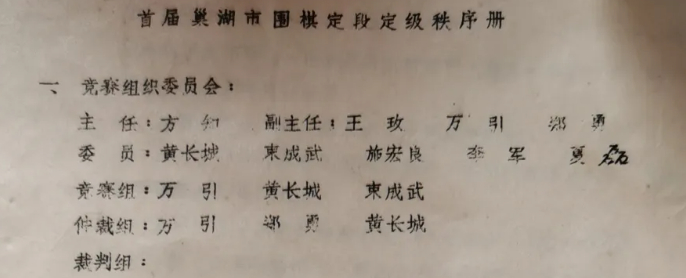 首届巢湖市围棋定段定级秩序册
一、竞赛组织委员会：
主 任：方 知 副主任：王 玫 万 引 郑 勇
委 员：黄长城 束成武 施宏良 李 军 夏 磊
竞赛组：万 引 黄长城 束成武
仲裁组：万 引 郑 勇 黄长城
裁判组：